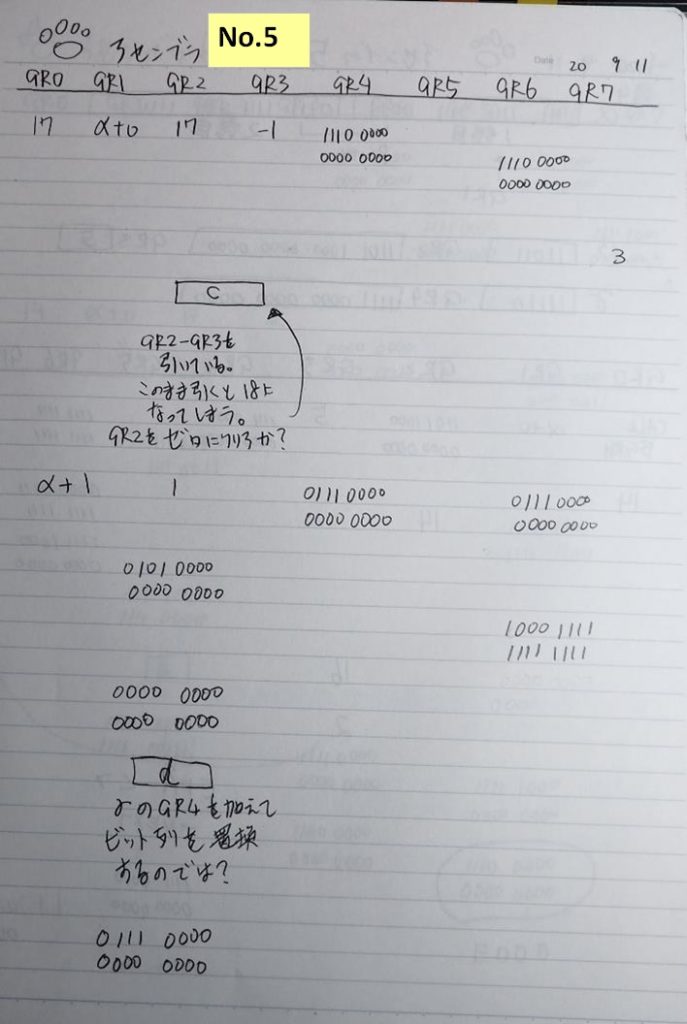 アセンブラ No.5
Date 20 9 11
GR0 GR1 GR2 GR3 GR4 GR5 GR6 GR7
17 α+0 17 -1 1110 0000
0000 0000 1110 0000
0000 0000
3
C
GR2-GR3を
引いている。
このまま引くと18に
なってしまう。
GR2をゼロにクリアか?
α+1 1 0111 0000 0111 0000
0000 0000 0000 0000
0101 0000
0000 0000
1000 1111
1111 1111
0000 0000
0000 0000
d
rのGR4を加えて
ビット列を置換
するのでは?
0111 0000
0000 0000